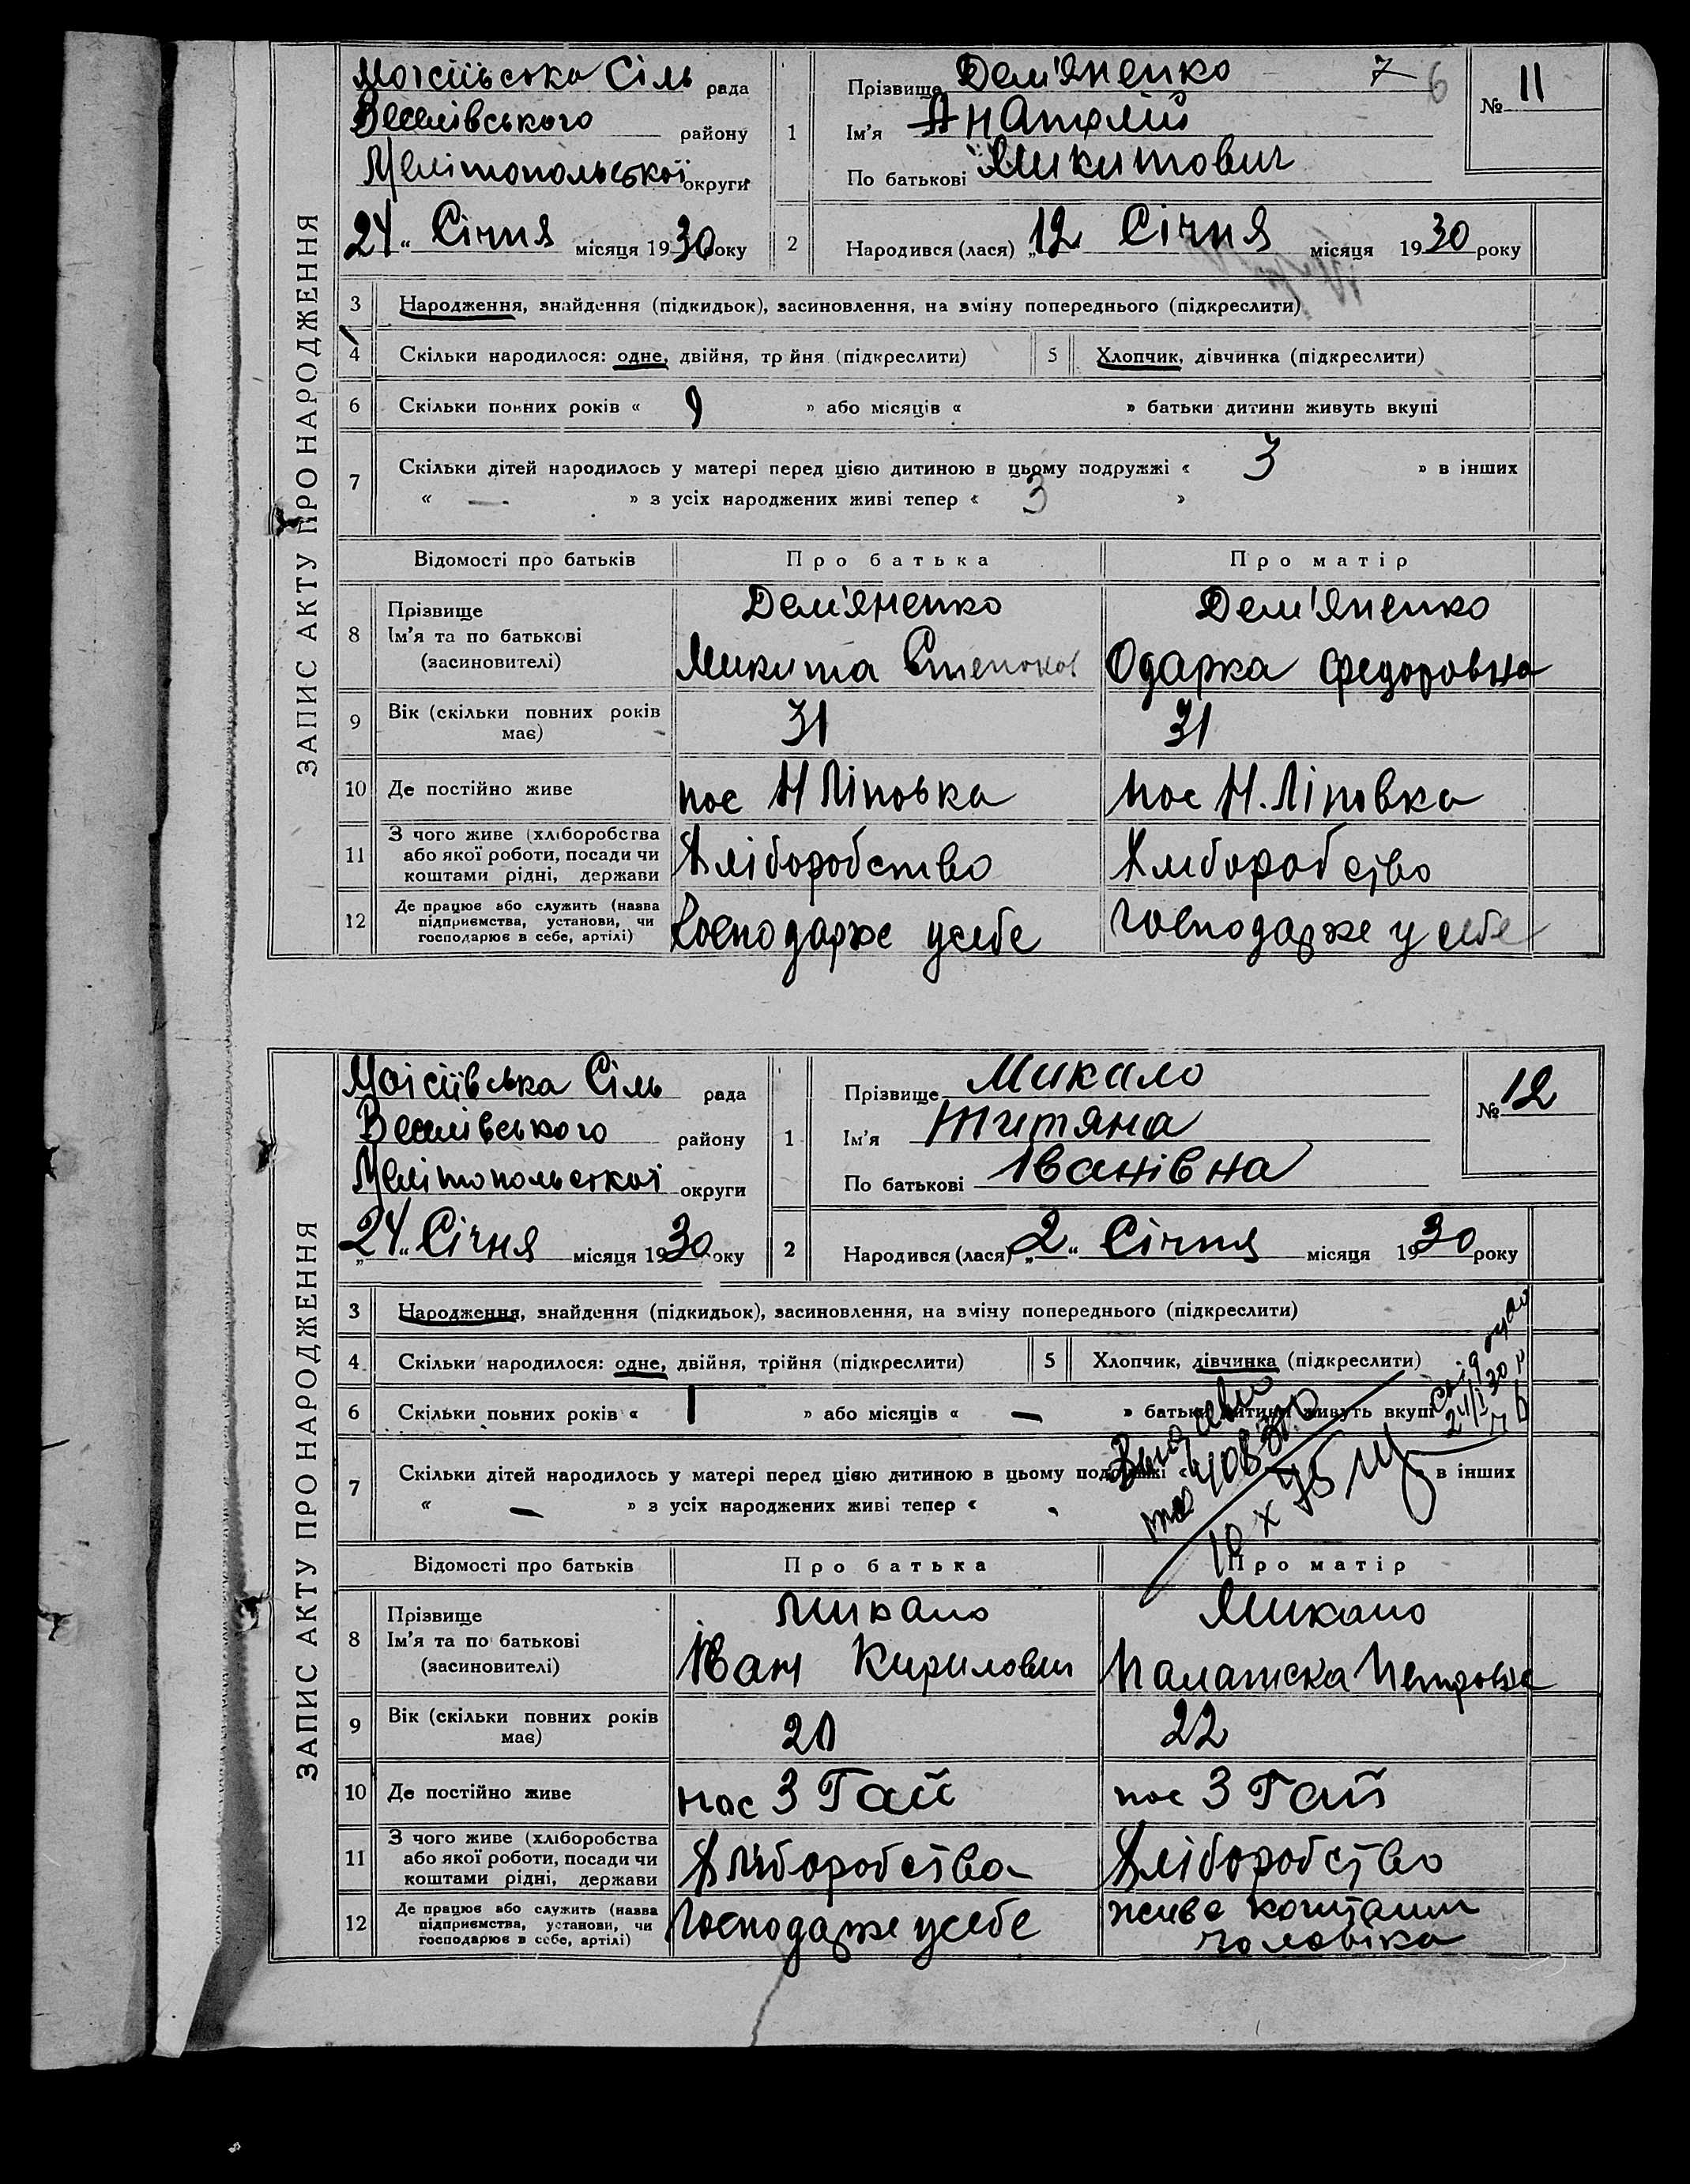 ЗАПИС АКТУ ПРО НАРОДЖЕННЯ
Моісіївська Сіль рада
Веселівського району
Мелітопольської округи
24 " Січня місяця 1930 року
1 Прізвище Дем'яненко 7 6
Ім'я Анатолій
По батькові Микитович
№ 11
2 Народився (лася) „12 Січня місяця 1930 року
3 Народження, знайдення (підкидьок), засиновлення, на зміну попереднього (підкреслити)
4 Скільки народилося: одне, двійня, тр йня (підкреслити) 5 Хлопчик, дівчинка (підкреслити)
6 Скільки повних років « 9 » або місяців « » батьки дитини живуть вкупі
7 Скільки дітей народилось у матері перед цією дитиною в цьому подружжі « 3 » в інших
« — » з усіх народжених живі тепер « 3 »
Відомості про батьків Про батька Про матір
8 Прізвище Ім'я та по батькові (засиновителі) Дем'яненко Дем'яненко
Микита Степанов Одарка Федоровна
9 Вік (скільки повних років має) 31 31
10 Де постійно живе пос Н Ліповка пос Н. Ліповка
11 З чого живе (хліборобства або якої роботи, посади чи коштами рідні, держави Хліборобство Хліборобство
12 Де працює або служить (назва підприємства, установи, чи господарює в себе, артілі) Господарже усебе Господарже у себе
ЗАПИС АКТУ ПРО НАРОДЖЕННЯ
Моісіївська Сіль рада
Веселівського району
Мелітопольської округи
„24" Січня місяця 1930 року
1 Прізвище Микало
Ім'я Титяна
По батькові Іванівна
№ 12
2 Народився (лася) „2" Січня місяця 1930 року
3 Народження, знайдення (підкидьок), засиновлення, на зміну попереднього (підкреслити)
4 Скільки народилося: одне, двійня, трійня (підкреслити) 5 Хлопчик, дівчинка (підкреслити)
6 Скільки повних років « 1 » або місяців « — » батьки дитини живуть вкупі
7 Скільки дітей народилось у матері перед цією дитиною в цьому подружжі « в інших
« — » з усіх народжених живі тепер «
Відомості про батьків Про батька Про матір
8 Прізвище Ім'я та по батькові (засиновителі) Микало Микало
Іван Кирилович Палажска Петровна
9 Вік (скільки повних років має) 21 22
10 Де постійно живе пос З Гай пос З Гай
11 З чого живе (хліборобства або якої роботи, посади чи коштами рідні, держави Хліборобства Хліборобство
12 Де працює або служить (назва підприємства, установи, чи господарює в себе, артілі) Господарже усебе живе коштами
чоловіка